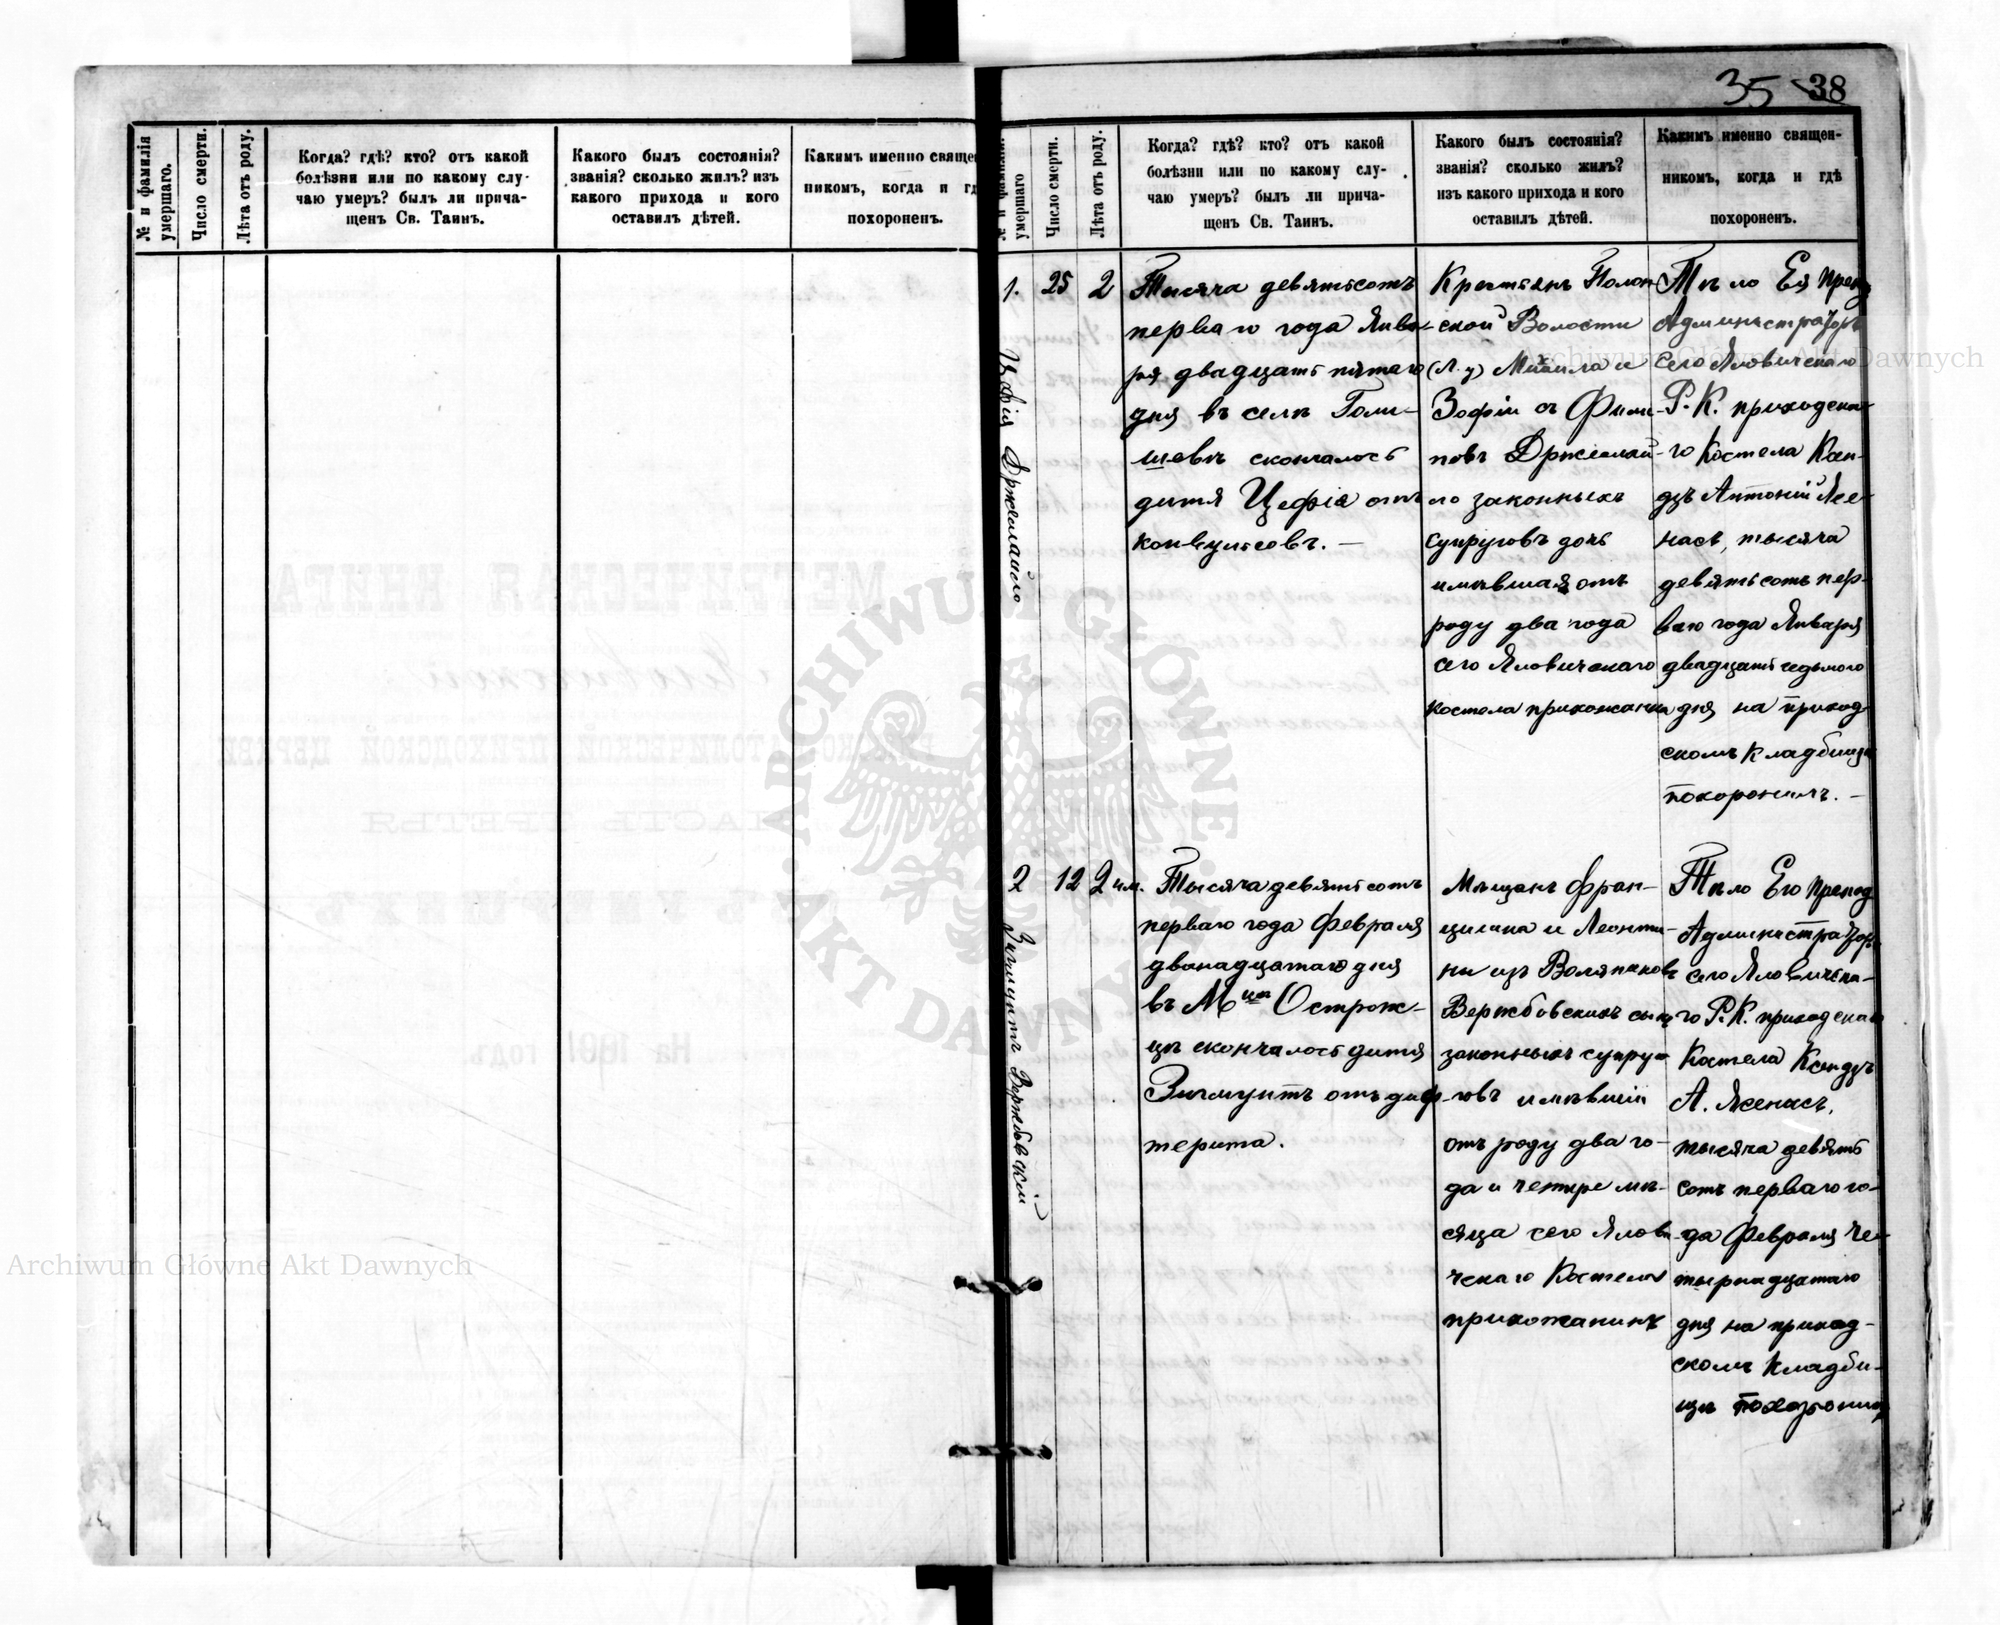 35 38
№ и фамилія умершаго.
Число смерти.
Лѣта отъ роду.
Когда? гдѣ? кто? отъ какой
болѣзни или по какому слу-
чаю умеръ? былъ ли прича-
щенъ Св. Таинъ.
Какого былъ состоянія?
званія? сколько жилъ? изъ
какого прихода и кого
оставилъ дѣтей.
Каимъ именно свяще
никомъ, когда и гд
похороненъ.
умершаго
Число смерти.
Лѣта отъ роду.
Когда? гдѣ? кто? отъ какой
болѣзни или по какому слу-
чаю умеръ? былъ ли прича-
щенъ Св. Таинъ.
Какого былъ состоянія?
званія? сколько жилъ?
изъ какого прихода и кого
оставилъ дѣтей.
Каимъ именно священ-
никомъ, когда и гдѣ
похороненъ.
1.
Цефія Држемайло
25
2
Тысяча девятьсотъ
перваго года Янва-
ря двадцать пятаго
дня въ селѣ Голы-
шевѣ скончалось
дитя Цефія отъ
конвульсовъ. —
Крестьянъ Полон-
ской Волости
(Л. у) Михаила и
Зофіи съ
Држемай-
ло законныхъ
супруговъ дочь
имѣвшая отъ
роду два года
сего Яловичскаго
костела прихожанка
Тѣло Ея
Администраторъ
сего Яловичскаго
Р. К. приходска-
го Костела Ксен-
дзъ Антоній Ясе-
насъ, тысяча
девятьсотъ пер-
ваго года Января
двадцать седьмого
дня на приход-
скомъ кладбищѣ
похоронилъ. —
2
Зигмунтъ Вержбовскій
12
2 и м.
Тысяча девятьсотъ
перваго года Февраля
двѣнадцатаго дня
въ Мцѣ Острож-
цѣ скончалось дитя
Зигмунтъ отъ диф-
терита.
Мѣщанъ Фран-
цишка и Леонти-
ны изъ
Вержбовскихъ сынъ
законныхъ супру-
говъ имѣвшій
отъ роду два го-
да и четыре мѣ-
сяца сего Ялови-
чскаго Костела
прихожанинъ
Тѣло Его
Администраторъ
сего Яловичска-
го Р. К. приходскаго
Костела Ксендзъ
А. Ясенасъ,
тысяча девять
сотъ перваго го-
да Февраля че-
тырнадцатаго
дня на приход-
скомъ кладби-
щѣ похоронилъ
Archiwum Główne Akt Dawnych
Archiwum Główne Akt Dawnych
ARCHIWUM GŁÓWNE · AKT DAWNYCH ·